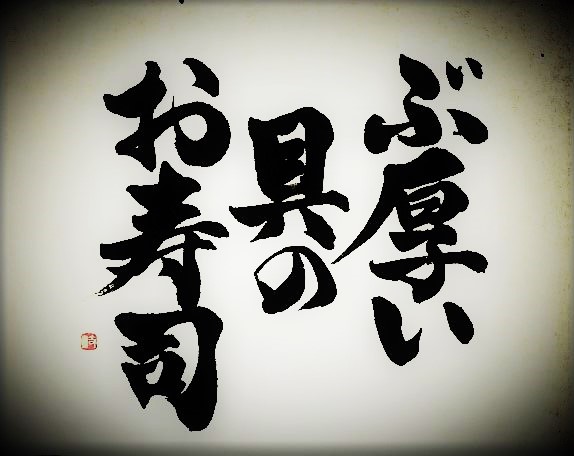 ぶ厚い
具の
お寿司